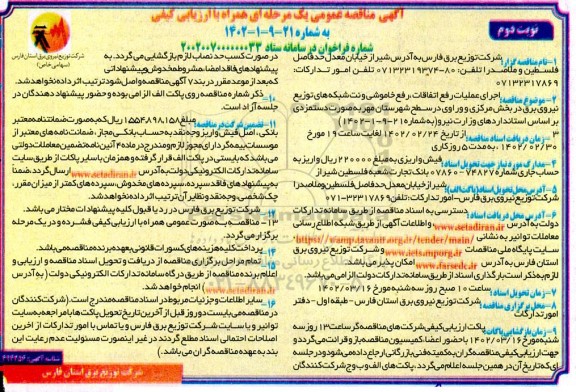 آگهی مناقصه عمومی یک مرحله ای همراه با ارزیابی کیفی
به شماره ۲۱-۹-۱-۱۴۰۲
شماره فراخوان در سامانه ستاد ۲۰۰۲۰۰۷۰۰۰۰۰۰۳۳
نوبت دوم
شرکت توزیع نیروی برق استان فارس
(سهامی خاص)
۱- نام مناقصه گزار: شرکت توزیع برق فارس به آدرس شیراز خیابان معدل حدفاصل
فلسطین و ملاصدرا تلفن: ۸۰-۰۷۱۳۲۳۱۹۳۷۴ تلفن امور تدارکات:
۰۷۱۳۲۳۱۷۸۶۹
۲- موضوع مناقصه: اجرای عملیات رفع اتفاقات، رفع خاموشی و نت شبکه های توزیع
نیروی برق در بخش مرکزی و روراوی در سطح شهرستان مهر به صورت دستمزدی
بر اساس استانداردهای وزارت نیرو (به شماره ۲۱-۹-۱-۱۴۰۲)
۳- زمان دریافت اسناد مناقصه: از تاریخ ۱۴۰۲/۰۲/۲۴ لغایت ساعت ۱۹ مورخ
۱۴۰۲/۰۲/۳۰، به مدت ۵ روز کاری
۴- مدارک مورد نیاز جهت تحویل اسناد: فیش واریزی به مبلغ ۲۲۰۰۰۰ ریال واریز به
حساب جاری شماره ۷۴۸۲۷-۰۷۸۶۰ بانک تجارت شعبه فلسطین شیراز
۵- آدرس محل تحویل اسناد (پاکت الف): شیراز خیابان معدل حدفاصل فلسطین و ملاصدرا
شرکت توزیع نیروی برق فارس- امور تدارکات: تلفن ۳۲۳۱۷۸۶۹-۰۷۱
۶- آدرس محل دریافت اسناد: دسترسی به اسناد مناقصه از طریق سامانه تدارکات
دولت به آدرس www.setadiran.ir و اطلاعات آگهی از طریق شبکه اطلاع رسانی
معاملات توانیر به نشانی https://wamp.tavanir.org.ir/tender/main/
سایت پایگاه ملی مناقصات www.iets.mporg.ir و شرکت توزیع نیروی برق
استان فارس به آدرس www.farsedc.ir امکان پذیر می باشد.
لازم به ذکر است بارگذاری اسناد از طریق سامانه تدارکات دولت الزامی می باشد.
۷- زمان تحویل اسناد: ساعت ۱۰ صبح روز سه شنبه مورخ ۱۴۰۲/۰۳/۱۶
۸- محل برگزاری مناقصه: شرکت توزیع نیروی برق استان فارس - طبقه اول - دفتر
امور تدارکات
۹- زمان بازگشایی پاکات: پاکت ارزیابی کیفی شرکت های مناقصه گر ساعت ۱۳ روز سه
شنبه مورخ ۱۴۰۲/۰۳/۱۶ با حضور اعضا کمیسیون مناقصه باز و قرائت می گردد و
جهت ارزیابی کیفی مناقصه گران به کمیته فنی بازرگانی ارجاع داده می شود و در جلسه
ای که تاریخ آن در همین جلسه اعلام می گردد، پاکت های الف و ب و ج شرکت کنندگان
در صورت کسب حد نصاب لازم بازگشایی می گردد. به
پیشنهادهای فاقد امضاء، مشروط، مخدوش و پیشنهاداتی
که بعد از موعد مقرر در بند ۷ آگهی مناقصه واصل شود ترتیب اثر داده نخواهد شد.
۱۰- ذکر شماره مناقصه روی پاکت الف الزامی بوده و حضور پیشنهاد دهندگان در
جلسه آزاد است.
۱۱- تضمین شرکت در مناقصه: مبلغ ۱۵۵۴۸۹۸۱۵۸ ریال که به صورت ضمانتنامه معتبر
بانکی، اصل فیش واریز وجه نقد به حساب بانکی مجاز، ضمانت نامه های معتبر از
موسسات بیمه گر دارای مجوز لازم و مندرج در ماده ۴ آئین نامه تضمین معاملات دولتی
می باشد که بایستی در پاکت الف قرار گرفته و همزمان با سایر پاکات از طریق سایت
سامانه تدارکات الکترونیکی دولت به آدرس www.setadiran.ir ارسال گردد. ضمنا
به پیشنهادهای فاقد سپرده، سپرده های مخدوش، سپرده های کمتر از میزان مقرر،
چک شخصی و وجه نقد و نظایر آن ترتیب اثر داده نخواهد شد.
۱۲- شرکت توزیع برق فارس در رد یا قبول کلیه پیشنهادات مختار می باشد.
۱۳- مناقصه به صورت عمومی همراه با ارزیابی کیفی فشرده و در یک مرحله
برگزار می گردد.
۱۴- پرداخت کلیه هزینه های کسورات قانونی به عهده برنده مناقصه می باشد.
۱۵- تمام مراحل برگزاری مناقصه از دریافت و تحویل اسناد مناقصه و ارزیابی و
اعلام برنده مناقصه از طریق درگاه سامانه تدارکات الکترونیکی دولت (به آدرس
www.setadiran.ir) انجام خواهد شد.
۱۶- سایر اطلاعات و جزئیات مربوط در اسناد مناقصه مندرج است. (شرکت کنندگان
در مناقصه می بایست دو روز قبل از آخرین تاریخ تحویل پاکت ها با مراجعه به سایت
توانیر و یا سایت شرکت توزیع برق فارس و یا تماس با امور تدارکات از آخرین
اصلاحات احتمالی اسناد مطلع گردند در غیر اینصورت مسئولیت عدم رعایت این
بند به عهده مناقصه گران می باشد.)
شرکت توزیع برق استان فارس